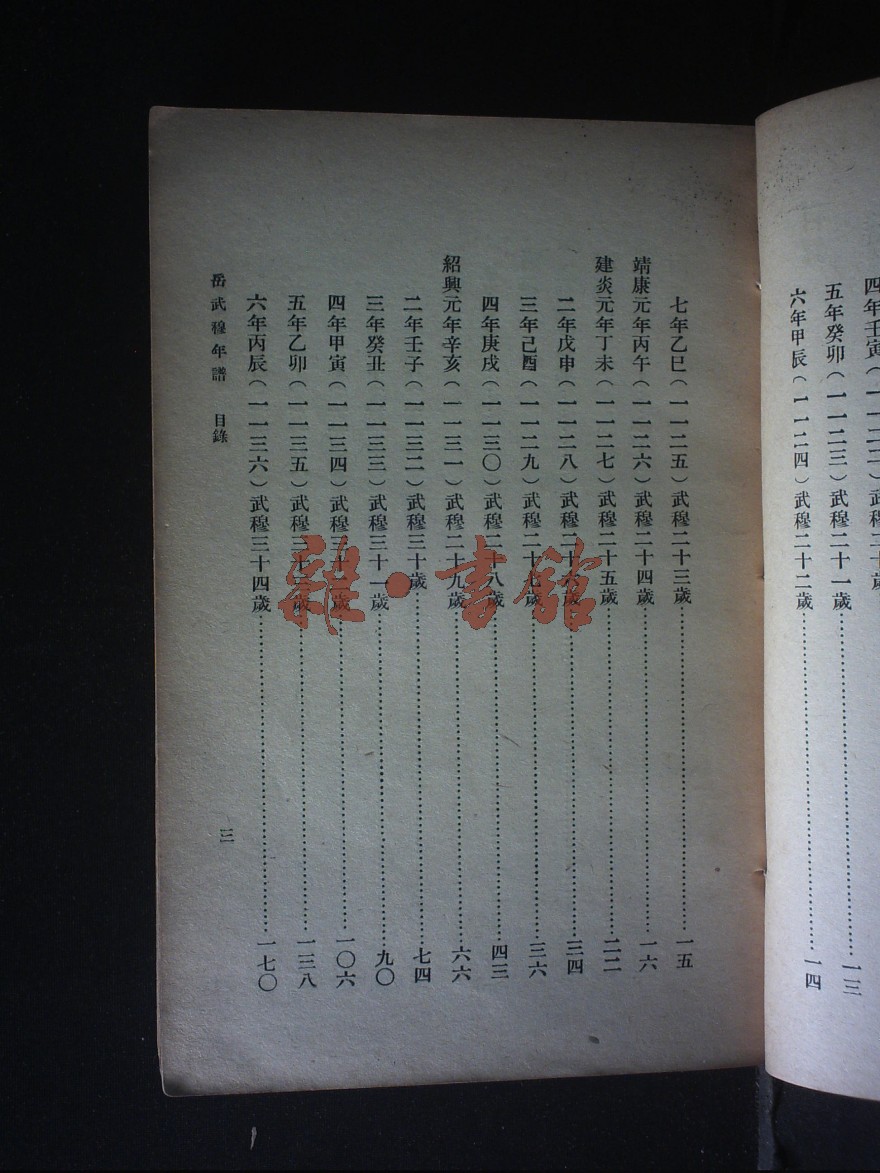 四年壬寅(一一二二)武穆二十歲
五年癸卯(一一二三)武穆二十一歲……一三
六年甲辰(一一二四)武穆二十二歲……一四
七年乙巳(一一二五)武穆二十三歲……一五
靖康元年丙午(一一二六)武穆二十四歲……一六
建炎元年丁未(一一二七)武穆二十五歲……二二
二年戊申(一一二八)武穆二十六歲……三四
三年己酉(一一二九)武穆二十七歲……三六
四年庚戌(一一三〇)武穆二十八歲……四三
紹興元年辛亥(一一三一)武穆二十九歲……六六
二年壬子(一一三二)武穆三十歲……七四
三年癸丑(一一三三)武穆三十一歲……九〇
四年甲寅(一一三四)武穆三十二歲……一〇六
五年乙卯(一一三五)武穆三十三歲……一三八
六年丙辰(一一三六)武穆三十四歲……一七〇
岳武穆年譜 目錄
三
雜·書館